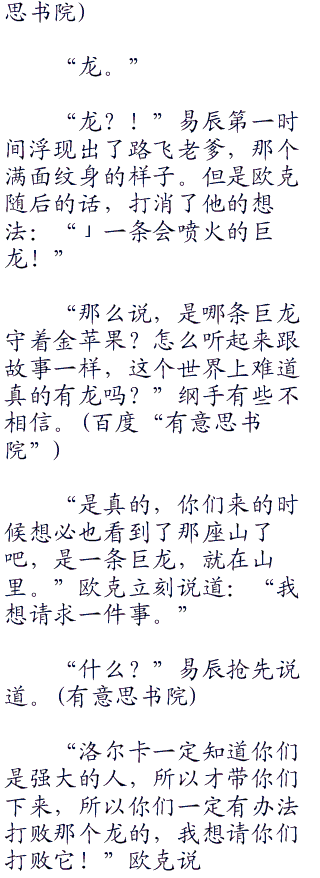 思书院)
“龙。”
“龙？！”易辰第一时
间浮现出了路飞老爹，那个
满面纹身的样子。但是欧克
随后的话，打消了他的想
法：“」一条会喷火的巨
龙！”
“那么说，是哪条巨龙
守着金苹果？怎么听起来跟
故事一样，这个世界上难道
真的有龙吗？”纲手有些不
相信。(百度“有意思书
院”)
“是真的，你们来的时
候想必也看到了那座山了
吧，是一条巨龙，就在山
里。”欧克立刻说道：“我
想请求一件事。”
“什么？”易辰抢先说
道。(有意思书院)
“洛尔卡一定知道你们
是强大的人，所以才带你们
下来，所以你们一定有办法
打败那个龙的，我想请你们
打败它！”欧克说